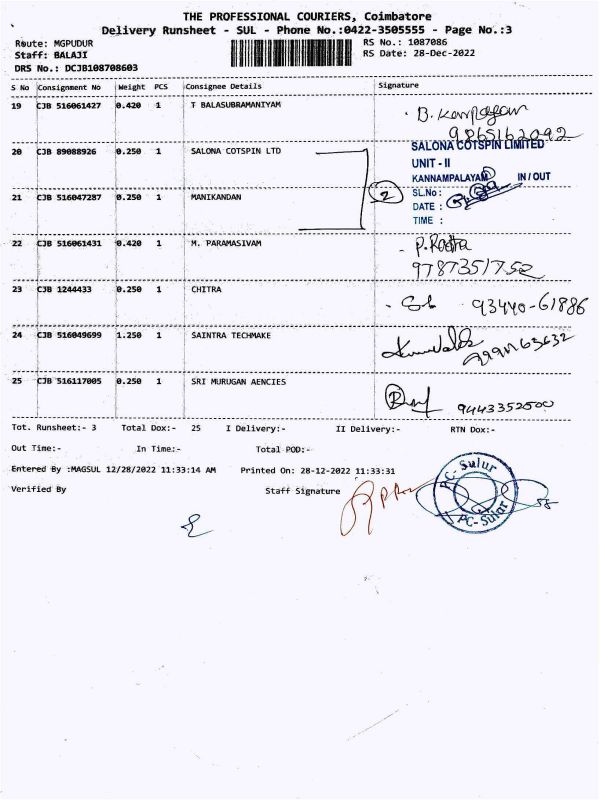 THE PROFESSIONAL COURIERS, Coimbatore
Delivery Runsheet - SUL - Phone No.:0422-3505555 - Page No.:3
Route: MGPUDUR RS No.: 1087086
Staff: BALAJI RS Date: 28-Dec-2022
DRS No.: DCJB108708603
S No Consignment No Weight PCS Consignee Details Signature
19 CJB 516061427 0.420 1 T BALASUBRAMANIYAM
9865162092
20 CJB 89088926 0.250 1 SALONA COTSPIN LTD SALONA COTSPIN LIMITED
UNIT - II
KANNAMPALAYAM IN / OUT
21 CJB 516047287 0.250 1 MANIKANDAN 2 SL.No :
DATE :
TIME :
22 CJB 516061431 0.420 1 M. PARAMASIVAM
9787351752
23 CJB 1244433 0.250 1 CHITRA 93440-61886
24 CJB 516049699 1.250 1 SAINTRA TECHMAKE
25 CJB 516117005 0.250 1 SRI MURUGAN AENCIES
9443352500
Tot. Runsheet:- 3 Total Dox:- 25 I Delivery:- II Delivery:- RTN Dox:-
Out Time:- In Time:- Total POD:-
Entered By :MAGSUL 12/28/2022 11:33:14 AM Printed On: 28-12-2022 11:33:31
Verified By Staff Signature
PC- Sulur
PC- Sulur